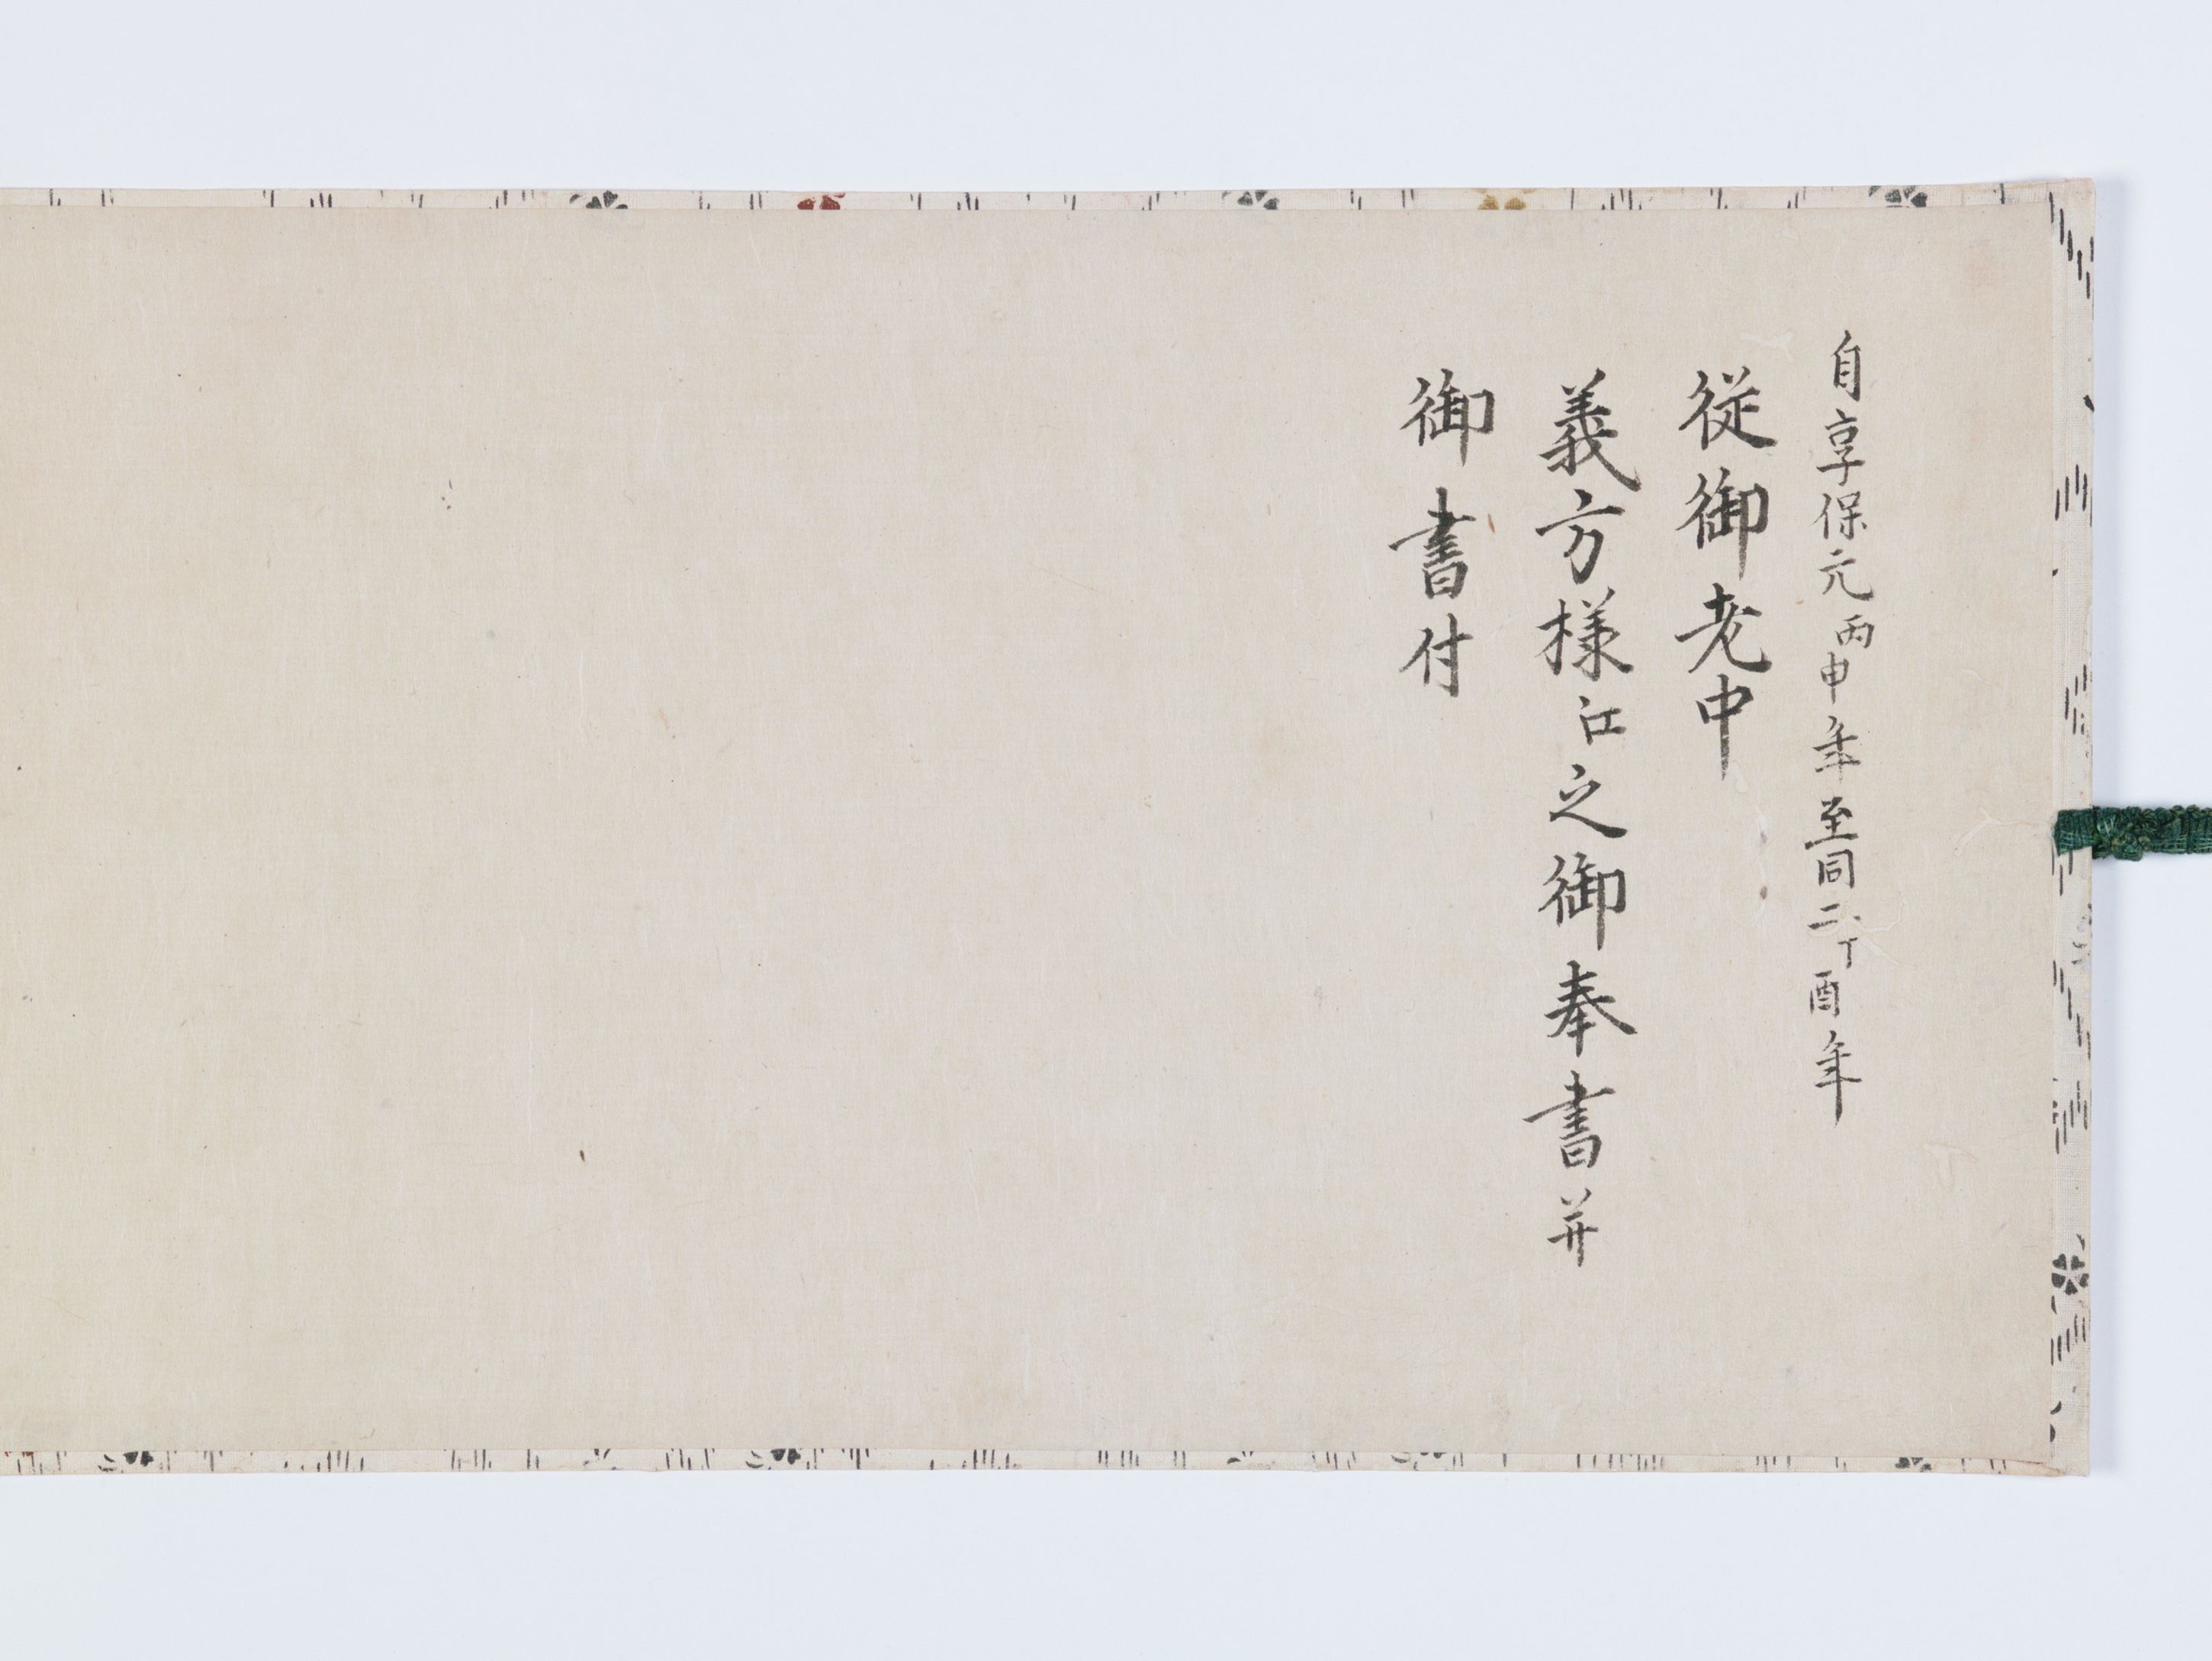 自享保元丙申年至同二丁酉年
従御老中
義方様江之御奉書并
御書付